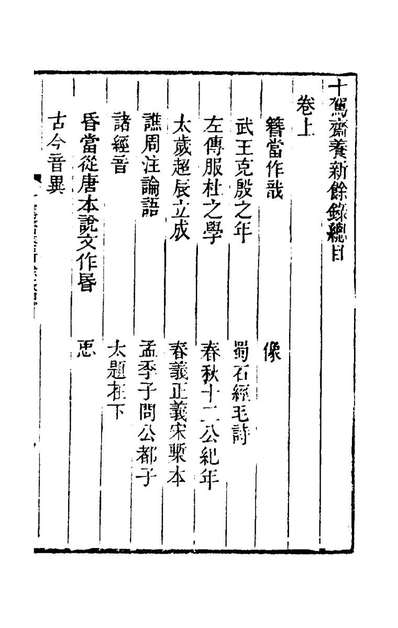 十駕齋養新餘錄總目
卷上
簪當作哉　像
武王克殷之年　蜀石經毛詩
左傳服杜之學　春秋十二公紀年
太歲超辰立成　春義正義宋槧本
譙周注論語　孟季子問公都子
諸經音　太題在下
昏當從唐本說文作昬
古今音異